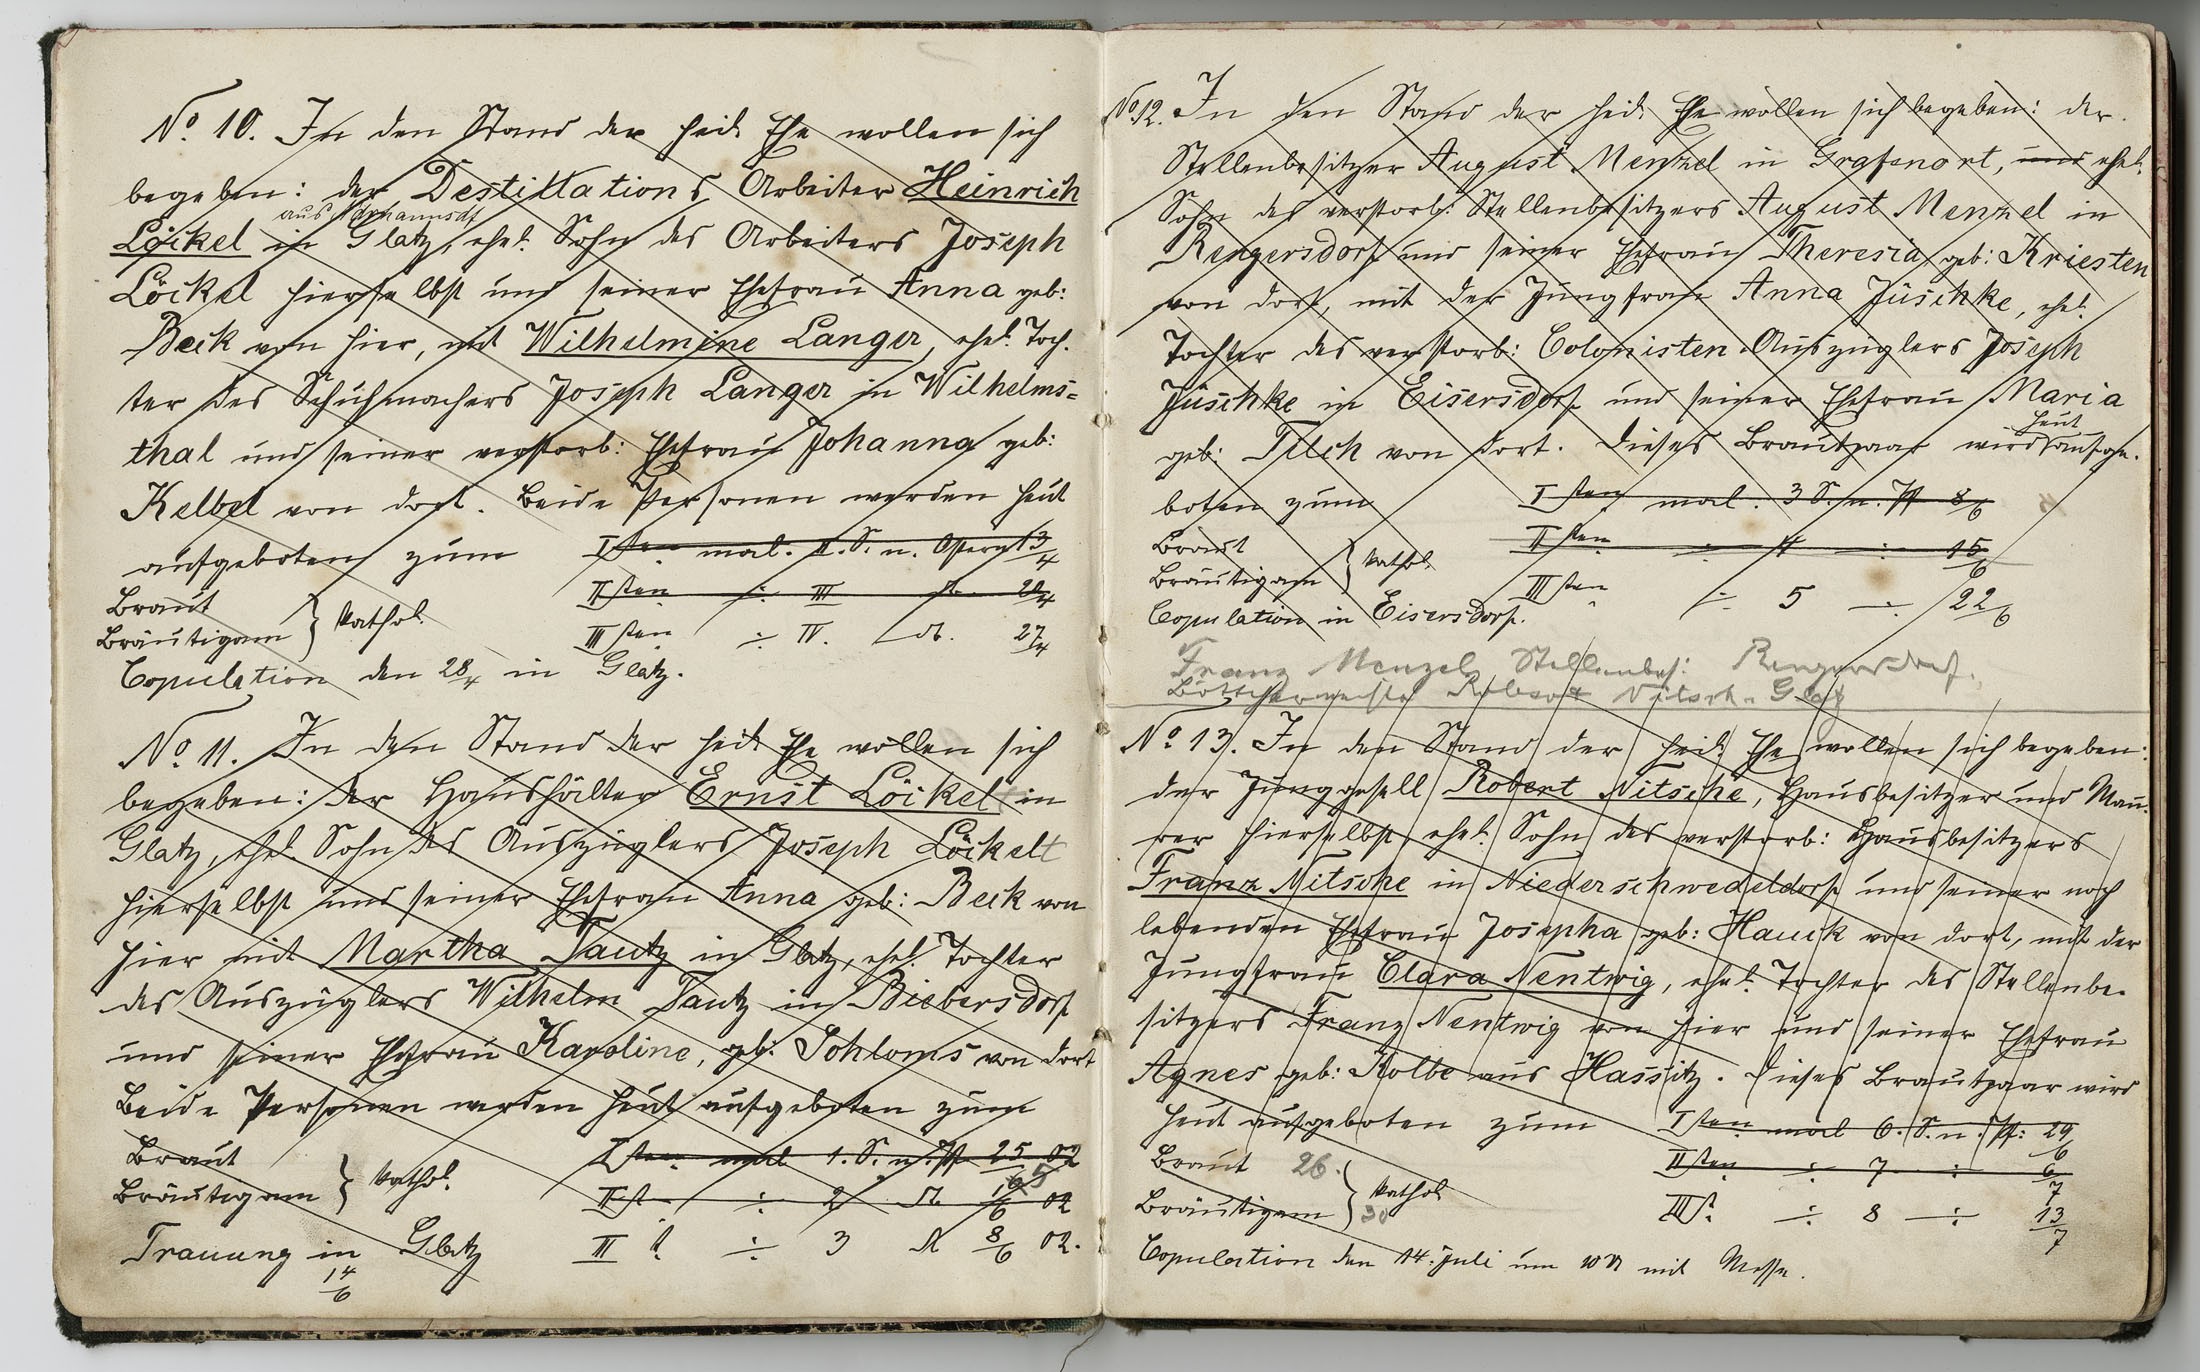 No 10. In den Stand der heil. Ehe wollen sich
begeben: der Destillations Arbeiter Heinrich
aus Neuhannsdf
Löckel in Glatz, ehel. Sohn des Arbeiters Joseph
Löckel hierselbst und seiner Ehefrau Anna geb:
Beck von hier, mit Wilhelmine Langer, ehel. Toch-
ter des Schuhmachers Joseph Langer in Wilhelms=
thal und seiner verstorb: Ehefrau Johanna geb:
Kelbel von dort. Beide Personen werden heut
aufgeboten zum Isten mal. II. S. n. Ostern 13/4
IIsten ÷ III do. 20/4
Braut
Bräutigam } kathol. IIIsten ÷ IV. do. 27/4
Copulation den 28/4 in Glatz.
No 11. In den Stand der heil. Ehe wollen sich
begeben: der Haushälter Ernst Löckelt in
Glatz, ehel. Sohn des Auszüglers Joseph Löckelt
hierselbst und seiner Ehefrau Anna geb: Beck von
hier mit Martha Tautz in Glatz, ehel. Tochter
des Auszüglers Wilhelm Tautz in Biebersdorf
und seiner Ehefrau Karoline, geb: Schloms von dort
Beide Personen werden heut aufgeboten zum
Braut Isten mal 1. S. n. Pf 25/5 02
Bräutigam } kathol. IIt ÷ 2 do 1/6 02
Trauung in Glatz III t. ÷ 3 do 8/6 02.
14/6
No 12. In den Stand der heil. Ehe wollen sich begeben: der
Stellenbesitzer August Menzel in Grafenort, und ehel.
Sohn des verstorb: Stellenbesitzers August Menzel in
Rengersdorf und seiner Ehefrau Theresia, geb: Kriesten
von dort, mit der Jungfrau Anna Jüschke, ehel.
Tochter des verstorb: Colonisten-Auszüglers Joseph
Jüschke in Eisersdorf und seiner Ehefrau Maria
heut
geb: Tilch von dort. Dieses Brautpaar wird aufge-
boten zum Isten mal. 3 S. n. Pf 8/6
Braut IIsten ÷ 4 ÷ 15/6
Bräutigam } kathol. IIIsten ÷ 5 ÷ 22/6
Copulation in Eisersdorf.
Franz Menzel, Stellenbes: Rengersdorf.
Böttchermeister Nitsch-Glatz
No 13. In den Stand der heil. Ehe wollen sich begeben:
der Junggesell Robert Nitsche, Hausbesitzer und Mau-
rer hierselbst, ehel. Sohn des verstorb: Hausbesitzers
Franz Nitsche in Niederschwedeldorf und seiner noch
lebenden Ehefrau Josepha geb: Hauck von dort, mit der
Jungfrau Clara Nentwig, ehel. Tochter des Stellenbe-
sitzers Franz Nentwig von hier und seiner Ehefrau
Agnes geb: Kolbe aus Hassitz. Dieses Brautpaar wird
heut aufgeboten zum Isten mal 6. S. n. Pf: 29/6
Braut 26. IIsten ÷ 7 ÷ 6/7
Bräutigam 30 } kathol IIIt. ÷ 8 ÷ 13/7
Copulation den 14. Juli um 10 U mit Messe.